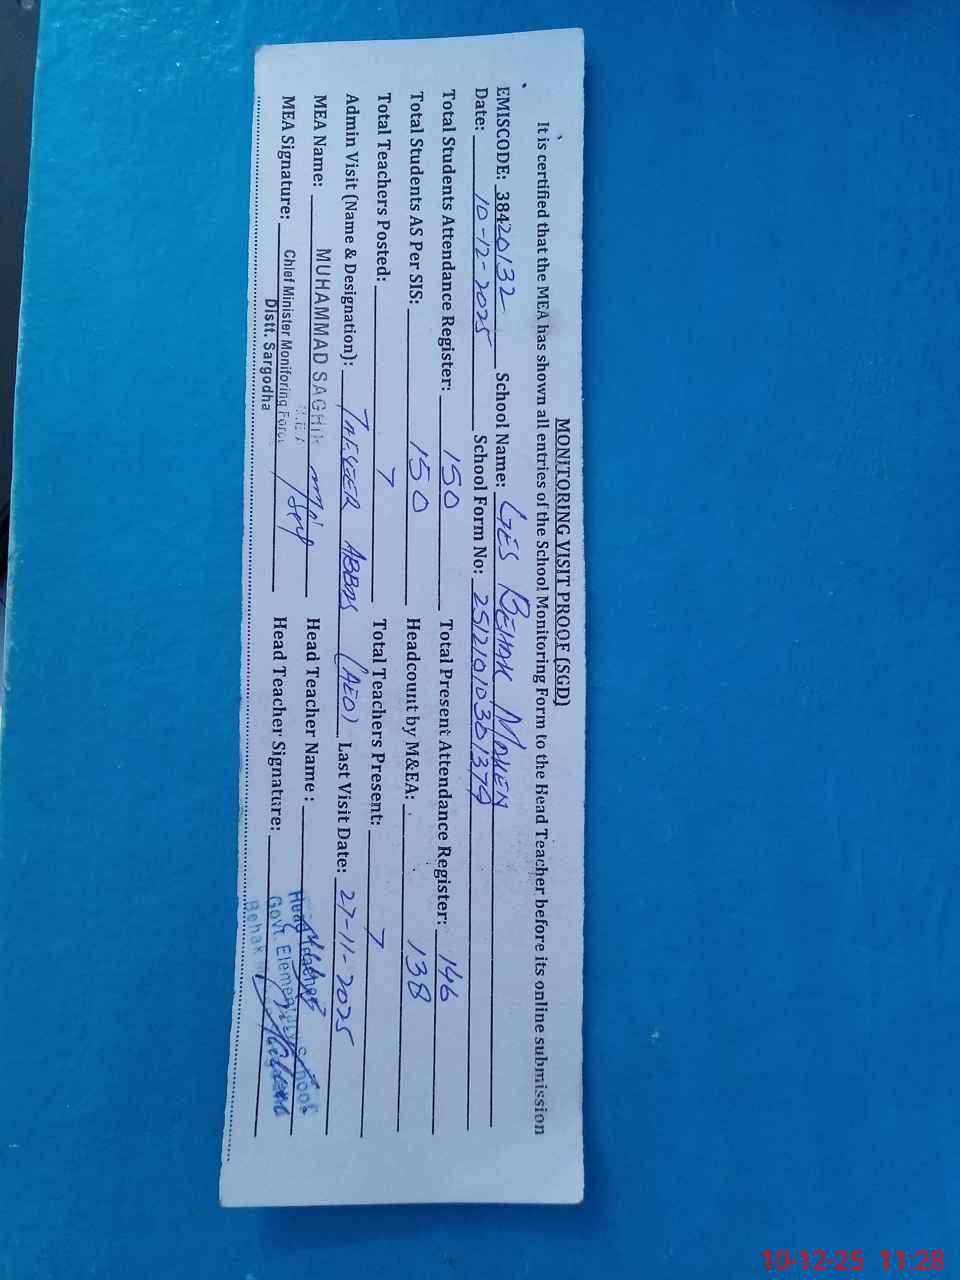 MONITORING VISIT PROOF (SGD)
It is certified that the MEA has shown all entries of the School Monitoring Form to the Head Teacher before its online submission
EMISCODE: 38420132 School Name: GES BEHAK MAKEN
Date: 10-12-2025 School Form No: 25121010301379
Total Students Attendance Register: 150 Total Present Attendance Register: 146
Total Students AS Per SIS: 150 Headcount by M&EA: 138
Total Teachers Posted: 7 Total Teachers Present: 7
Admin Visit (Name & Designation): ABBAS (AEO) Last Visit Date: 27-11-2025
MEA Name: MUHAMMAD SAGHIR Head Teacher Name:
M.E.A
MEA Signature: Chief Minister Monitoring Force Head Teacher Signature:
Distt. Sargodha
Head Teacher
Govt. Elementary School
Behak
10-12-25 11:28